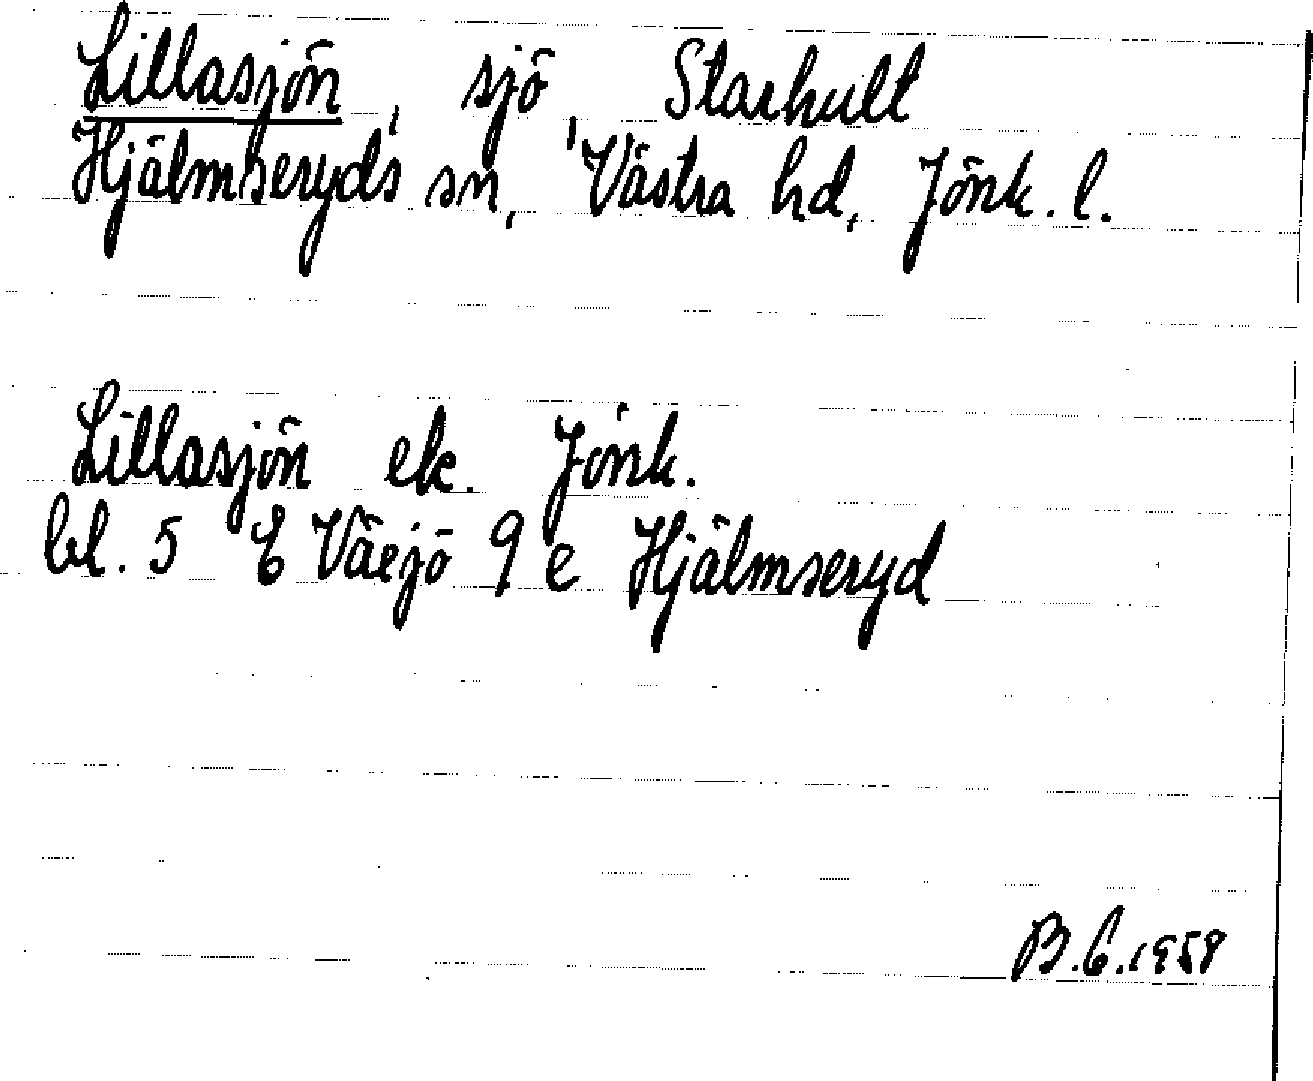 Lillasjön, sjö, Starhult
Hjälmseryds sn, Västra hd, Jönk. l.
Lillasjön ek. Jönk.
bl. 5 E Växjö 9 e Hjälmseryd
B.E.1958